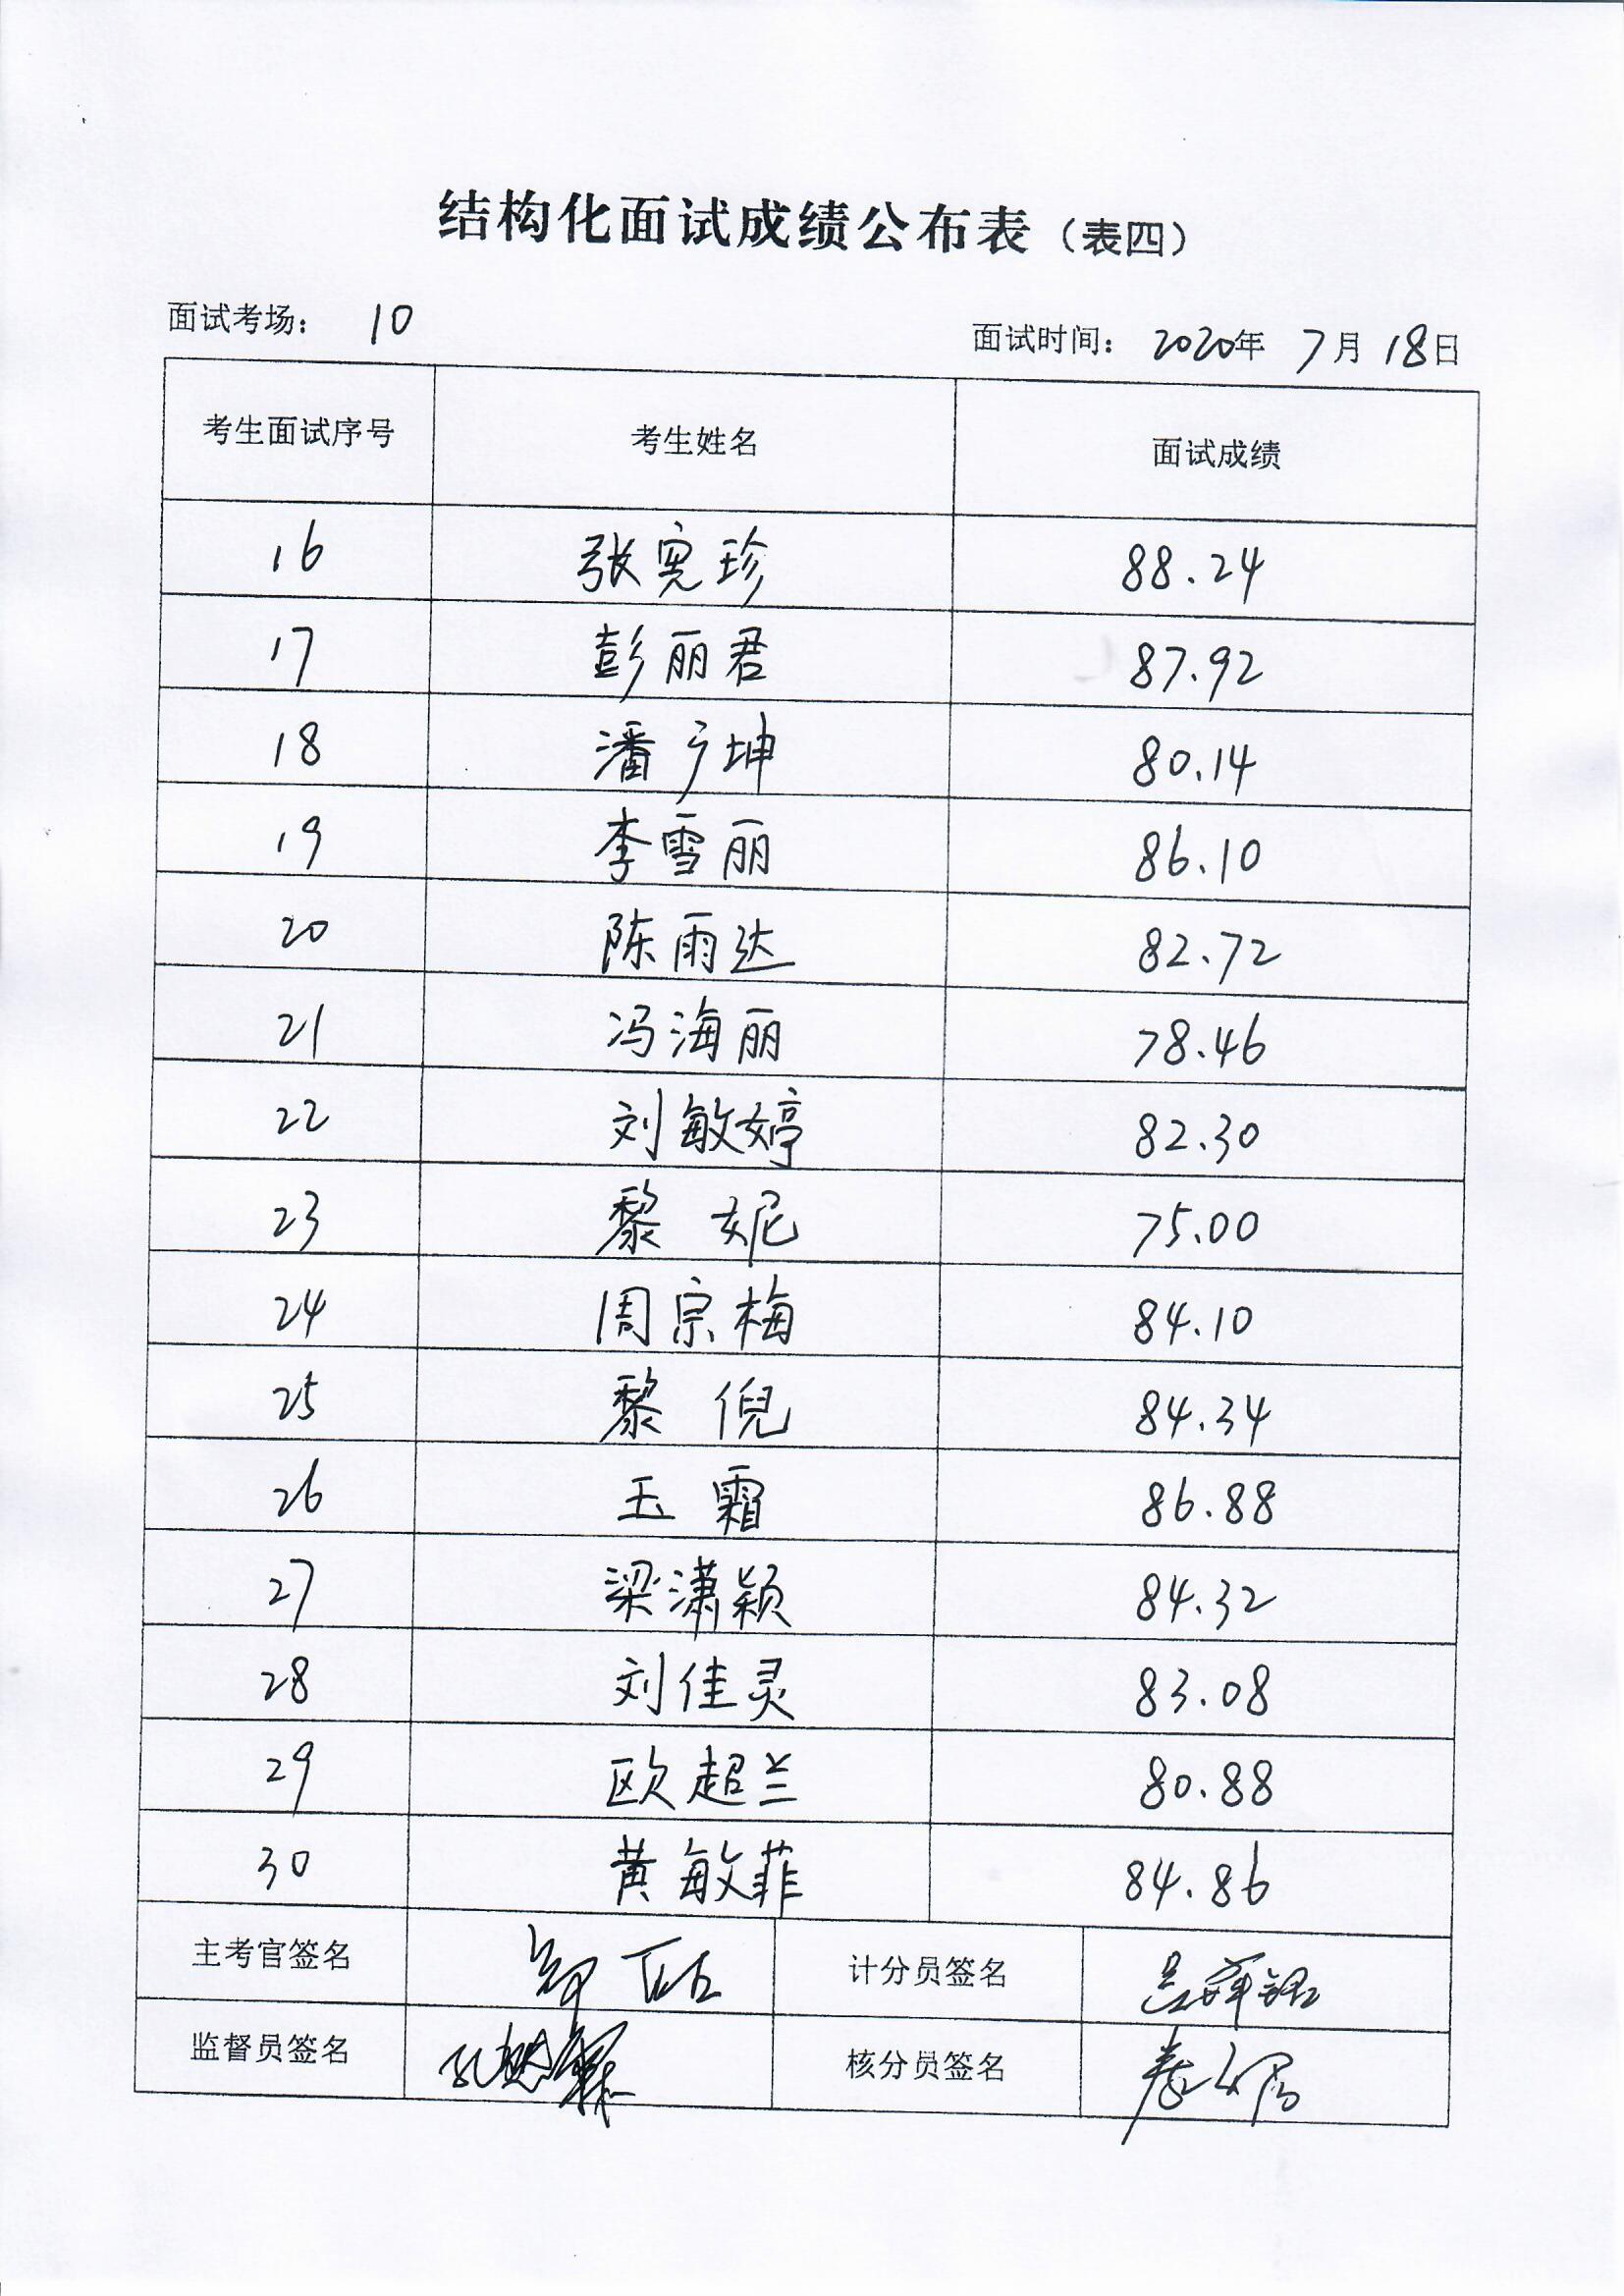 结构化面试成绩公布表（表四）
面试考场： 10 面试时间： 2020年 7月 18日
考生面试序号 考生姓名 面试成绩
16 张宪珍 88.24
17 彭丽君 87.92
18 潘广坤 80.14
19 李雪丽 86.10
20 陈雨达 82.72
21 冯海丽 78.46
22 刘敏婷 82.30
23 黎 妮 75.00
24 周宗梅 84.10
25 黎 倪 84.34
26 玉 霜 86.88
27 梁潇颖 84.32
28 刘佳灵 83.08
29 欧超兰 80.88
30 黄敏菲 84.86
主考官签名 计分员签名
监督员签名 核分员签名